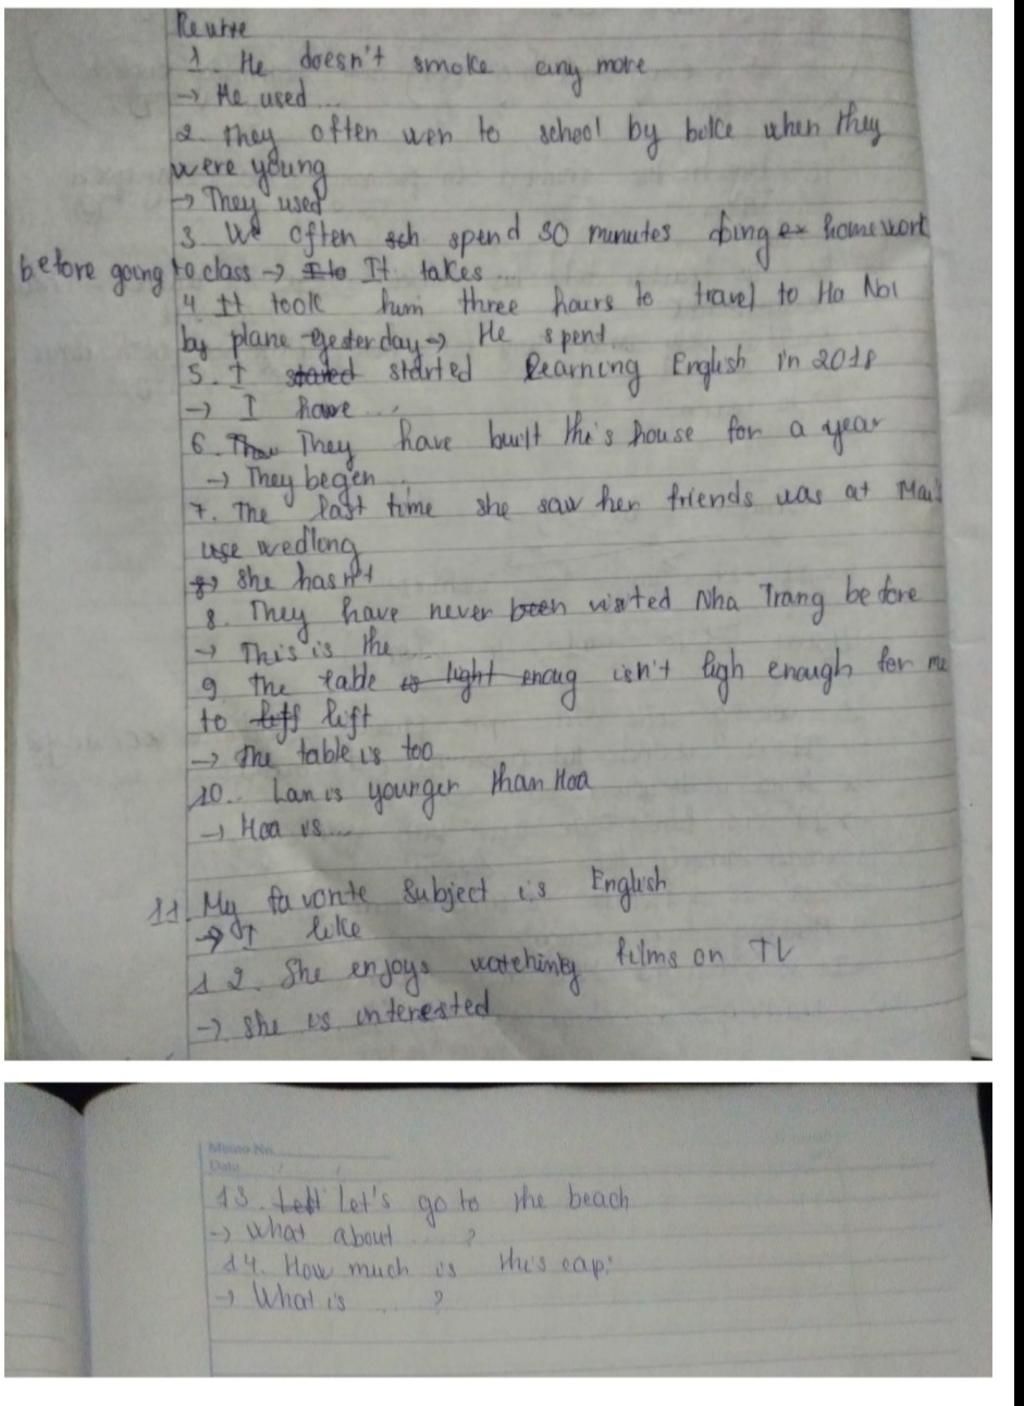 Rewrite
1. He doesn't smoke any more
→ He used...
2. They often wen to school by bolce when they
were young
→ They used
3 We often sch spend 30 minutes doing ex homework
before going to class → I to It takes...
4 It took him three hours to travel to Ha Noi
by plane yesterday → He spent...
5. I stated started learning English in 2018
→ I have...
6. They have built this house for a year
→ They began...
7. The last time she saw her friends was at Mai's
use wedlong
→ she hasn't
8. They have never been visited Nha Trang before
→ This is the...
9 the table is light enoug isn't ligh enough for me
to liff lift
→ The table is too
10.. Lan is younger than Hoa
→ Hoa is...
11. My favorite subject is English
→ I like
12. She enjoys watching films on TV
→ she is interested
Memo No.
Date / /
13. Let's go to the beach
→ what about ...?
14. How much is this cap?
→ What is ...?